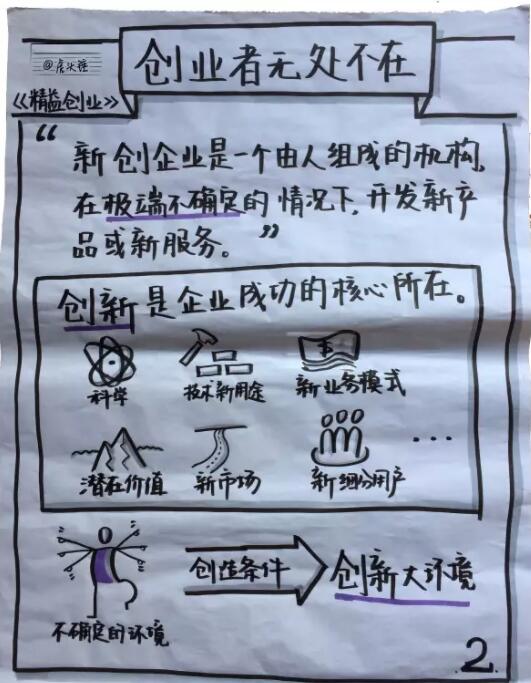 创业者无处不在
@虎妞锺
《精益创业》
“新创企业是一个由人组成的机构，
在极端不确定的情况下，开发新产
品或新服务。”
创新是企业成功的核心所在。
科学 技术新用途 新业务模式
潜在价值 新市场 新细分用户 ...
创造条件 创新大环境
不确定的环境
2